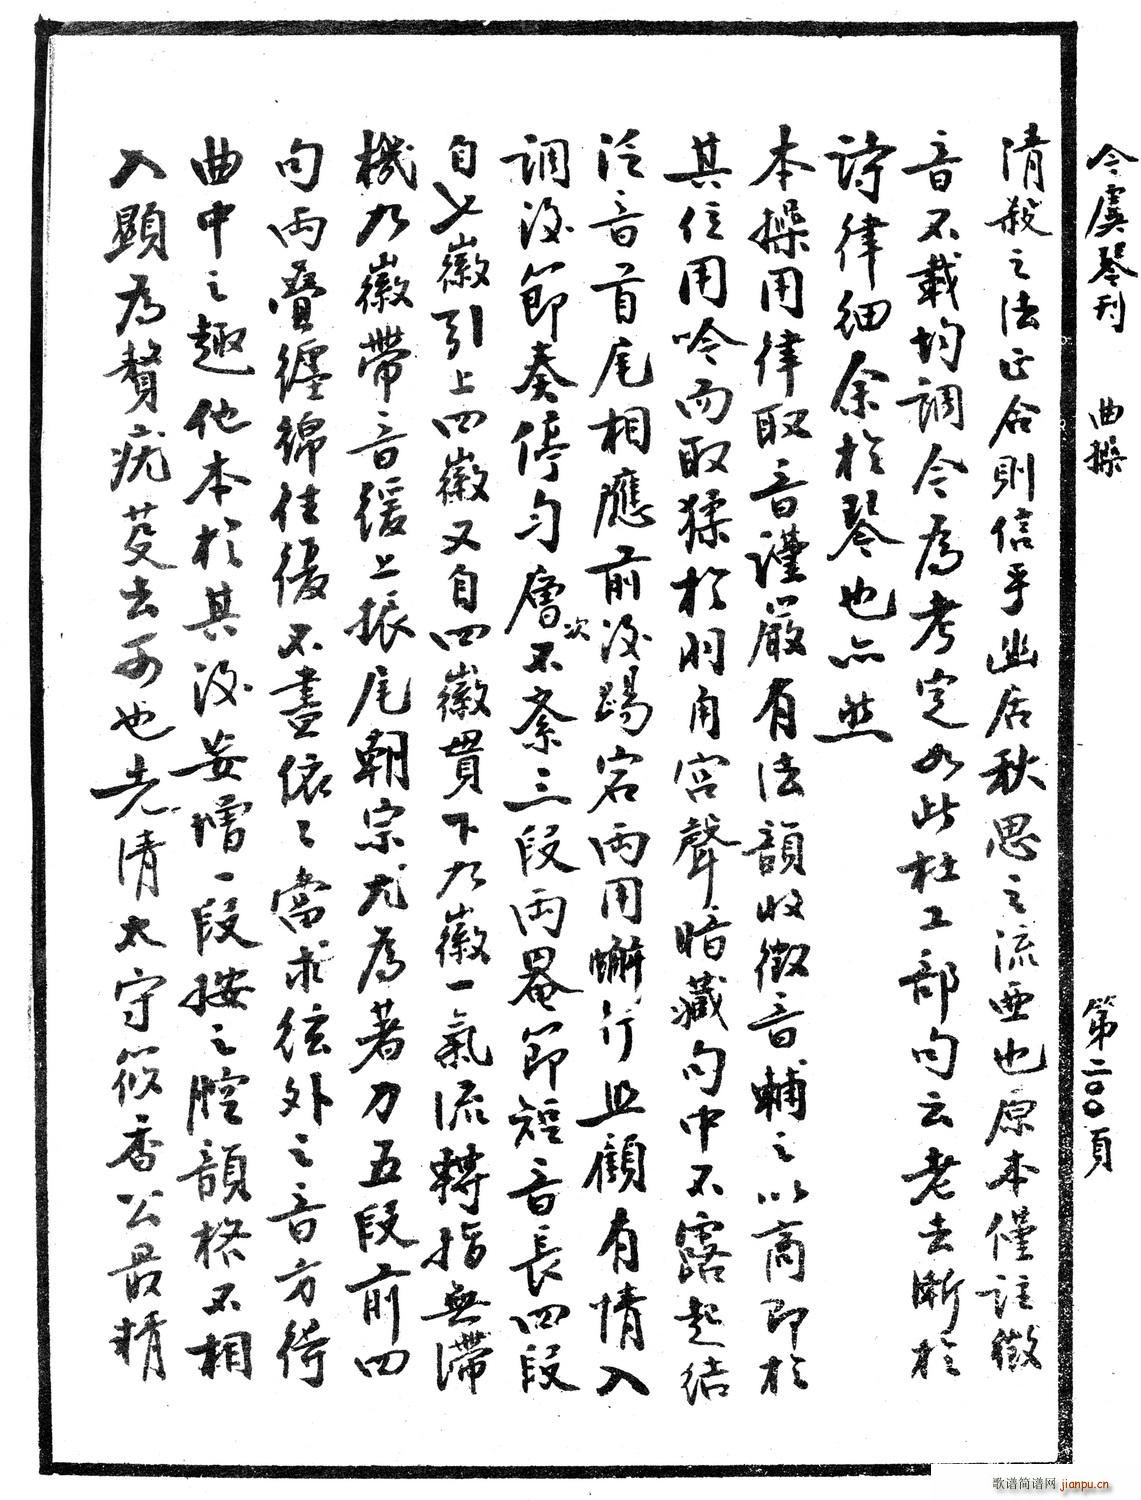 今虞琴刊 曲操 第二〇〇頁
清殺之法正合則信乎幽居秋思之流亞也原本僅註徵
音不載均調今為考定如此杜工部句云老去漸於
詩律細余於琴也亦然
本操用律取音謹嚴有法韻收徵音輔之以商即於
其位用吟而取猱於羽角宮聲暗藏句中不露起結
泛音首尾相應前後踢宕兩用蠏行且顧有情入
調後節奏停勻層次不紊三段兩罨節短音長四段
自七徽引上四徽又自四徽貫下九徽一氣流轉指無滯
機九徽帶音緩上振尾朝宗尤為著力五段前四
句兩疊纏綿往復不盡依々當求絃外之音方得
曲中之趣他本於其後妄增一段按之腔韻格不相
入顯為贅疣芟去可也先清太守筱香公最精
歌谱简谱网 jianpu.cn